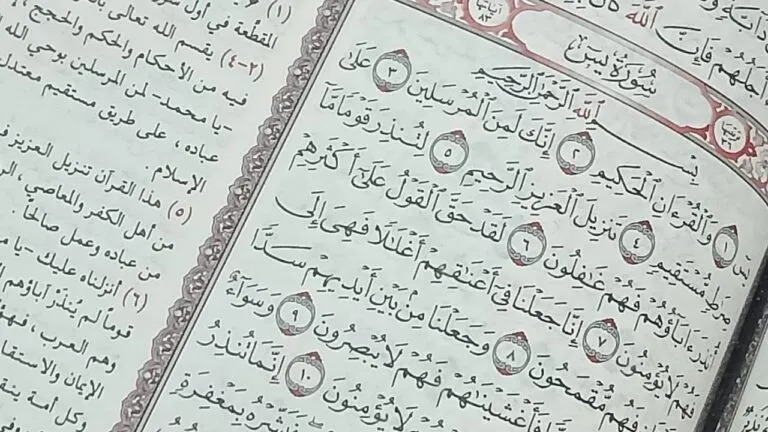 أجلهم فإن الله
آياتها ٨٣
سُورَةُ يسٓ
بِسْمِ اللَّهِ الرَّحْمَٰنِ الرَّحِيمِ
يسٓ ١ وَالْقُرْءَانِ الْحَكِيمِ ٢ إِنَّكَ لَمِنَ الْمُرْسَلِينَ ٣ عَلَىٰ
صِرَٰطٍ مُّسْتَقِيمٍ ٤ تَنزِيلَ الْعَزِيزِ الرَّحِيمِ ٥ لِتُنذِرَ قَوْمًا مَّا
أُنذِرَ ءَابَآؤُهُمْ فَهُمْ غَٰفِلُونَ ٦ لَقَدْ حَقَّ الْقَوْلُ عَلَىٰٓ أَكْثَرِهِمْ
فَهُمْ لَا يُؤْمِنُونَ ٧ إِنَّا جَعَلْنَا فِىٓ أَعْنَٰقِهِمْ أَغْلَٰلًا فَهِىَ إِلَى
فَهُم مُّقْمَحُونَ ٨ وَجَعَلْنَا مِنۢ بَيْنِ أَيْدِيهِمْ سَدًّا
فَأَغْشَيْنَٰهُمْ فَهُمْ لَا يُبْصِرُونَ ٩ وَسَوَآءٌ
لَا يُؤْمِنُونَ ١٠ إِنَّمَا تُنذِرُ
فَبَشِّرْهُ بِمَغْفِرَةٍ
(١)
المقطَّعة في أول سورة
(٢-٤) يقسم الله تعالى
فيه من الأحكام والحكم والحجج،
-يا محمد- لمن المرسلين بوحي الله
عباده، على طريق مستقيم معتدل
الإسلام
(٥) هذا القرآن تنزيل العزيز
من أهل الكفر والمعاصي،
من عباده وعمل صالحًا.
(٦) أنزلناه عليك -يا
قومًا لم يُنذَرْ آباؤهم
وهم العرب، فهؤلاء
الإيمان والاستقامة
وكل أمة